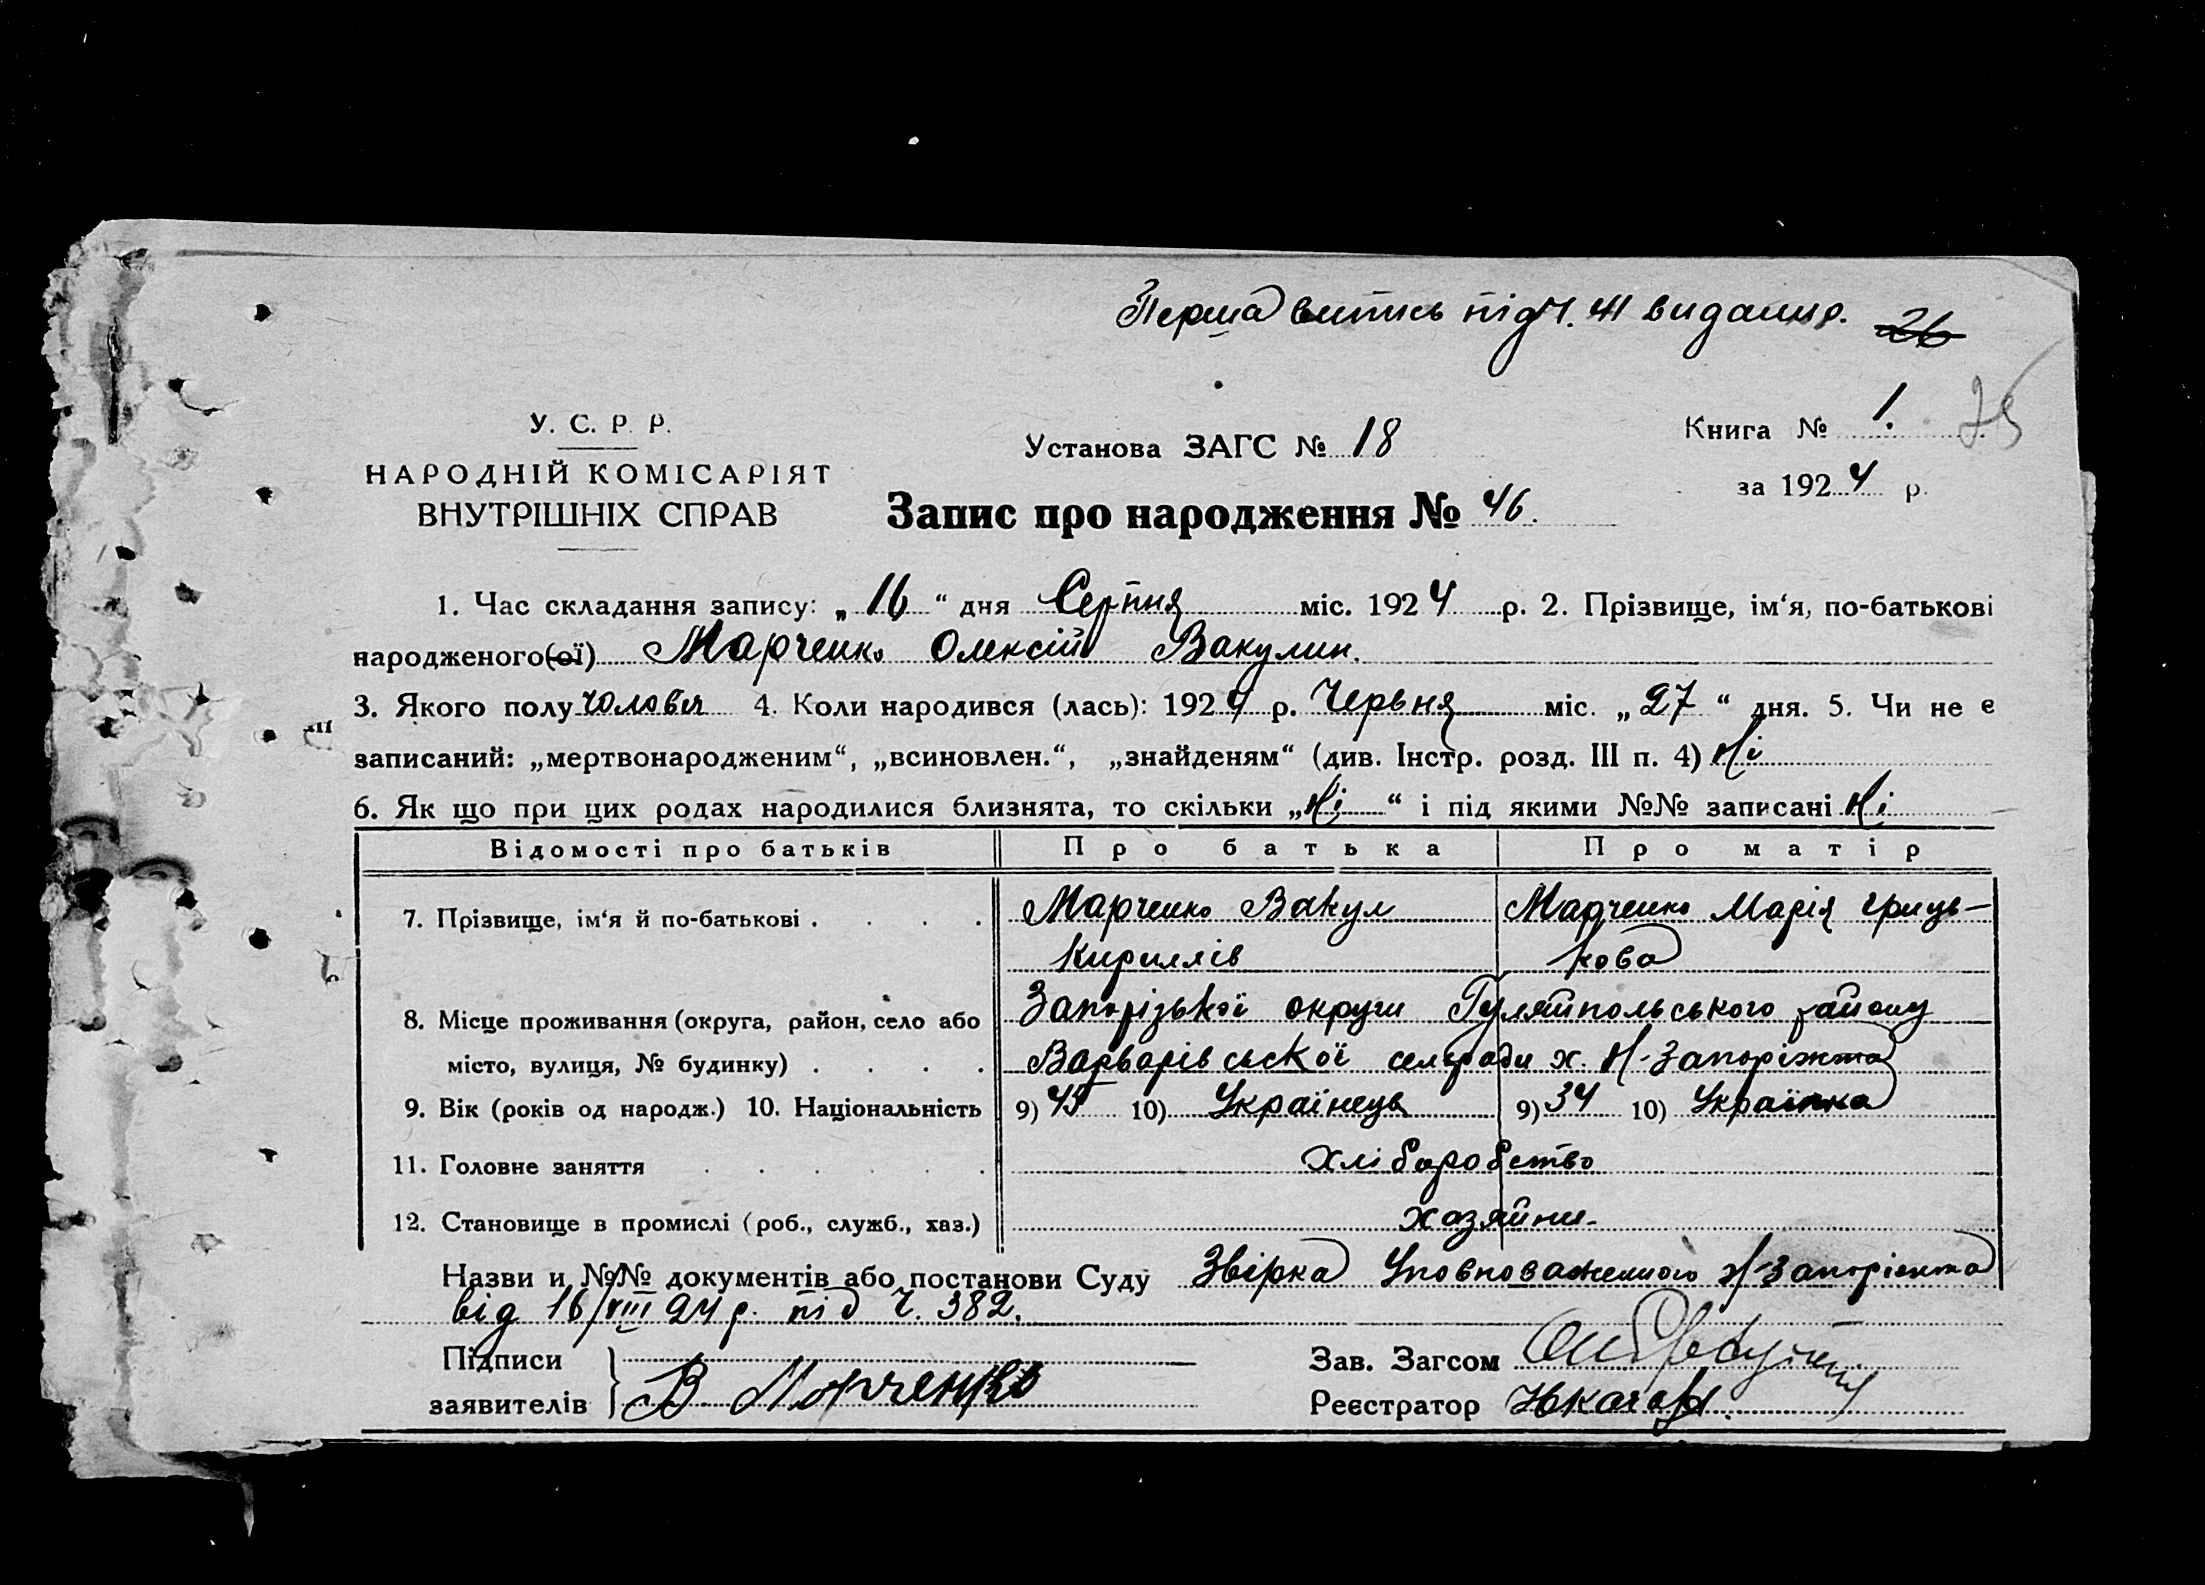 Перша випись під Ч. 41 видана. 26
25
У. С. Р. Р.
Установа ЗАГС № 18
Книга № 1.
НАРОДНІЙ КОМІСАРІЯТ
за 1924 р.
ВНУТРІШНІХ СПРАВ
Запис про народження № 46.
1. Час складання запису: „16“ дня Серпня міс. 1924 р. 2. Прізвище, ім‘я, по-батькові
народженого(ої) Марченко Олексій Вакулин.
3. Якого полу чоловія 4. Коли народився (лась): 1924 р. Червня міс. „27“ дня. 5. Чи не є
записаний: „мертвонародженим“, „всиновлен.“, „знайденям“ (див. Інстр. розд. III п. 4) Ні
6. Як що при цих родах народилися близнята, то скільки „Ні“ і під якими №№ записані Ні
Відомості про батьків Про батька Про матір
7. Прізвище, ім‘я й по-батькові . . . . Марченко Вакул Марченко Марія Гриць-
Кириллів кова
8. Місце проживання (округа, район, село або Запорізької округи Гуляйпольського району
місто, вулиця, № будинку) . . . . Варварівської сельради х. Н-Запоріжжа
9. Вік (років од народж.) 10. Національність 9) 45 10) Українець 9) 34 10) Українка
11. Головне заняття . . . . . . хліборобство
12. Становище в промислі (роб., служб., хаз.) хозяйни-
Назви и №№ документів або постанови Суду Звірка Уповноваженного Н-Запоріжжа
від 16/VIII 24 р. під Ч. 382.
Підписи
заявителів В Марченко
Зав. Загсом
Реєстратор